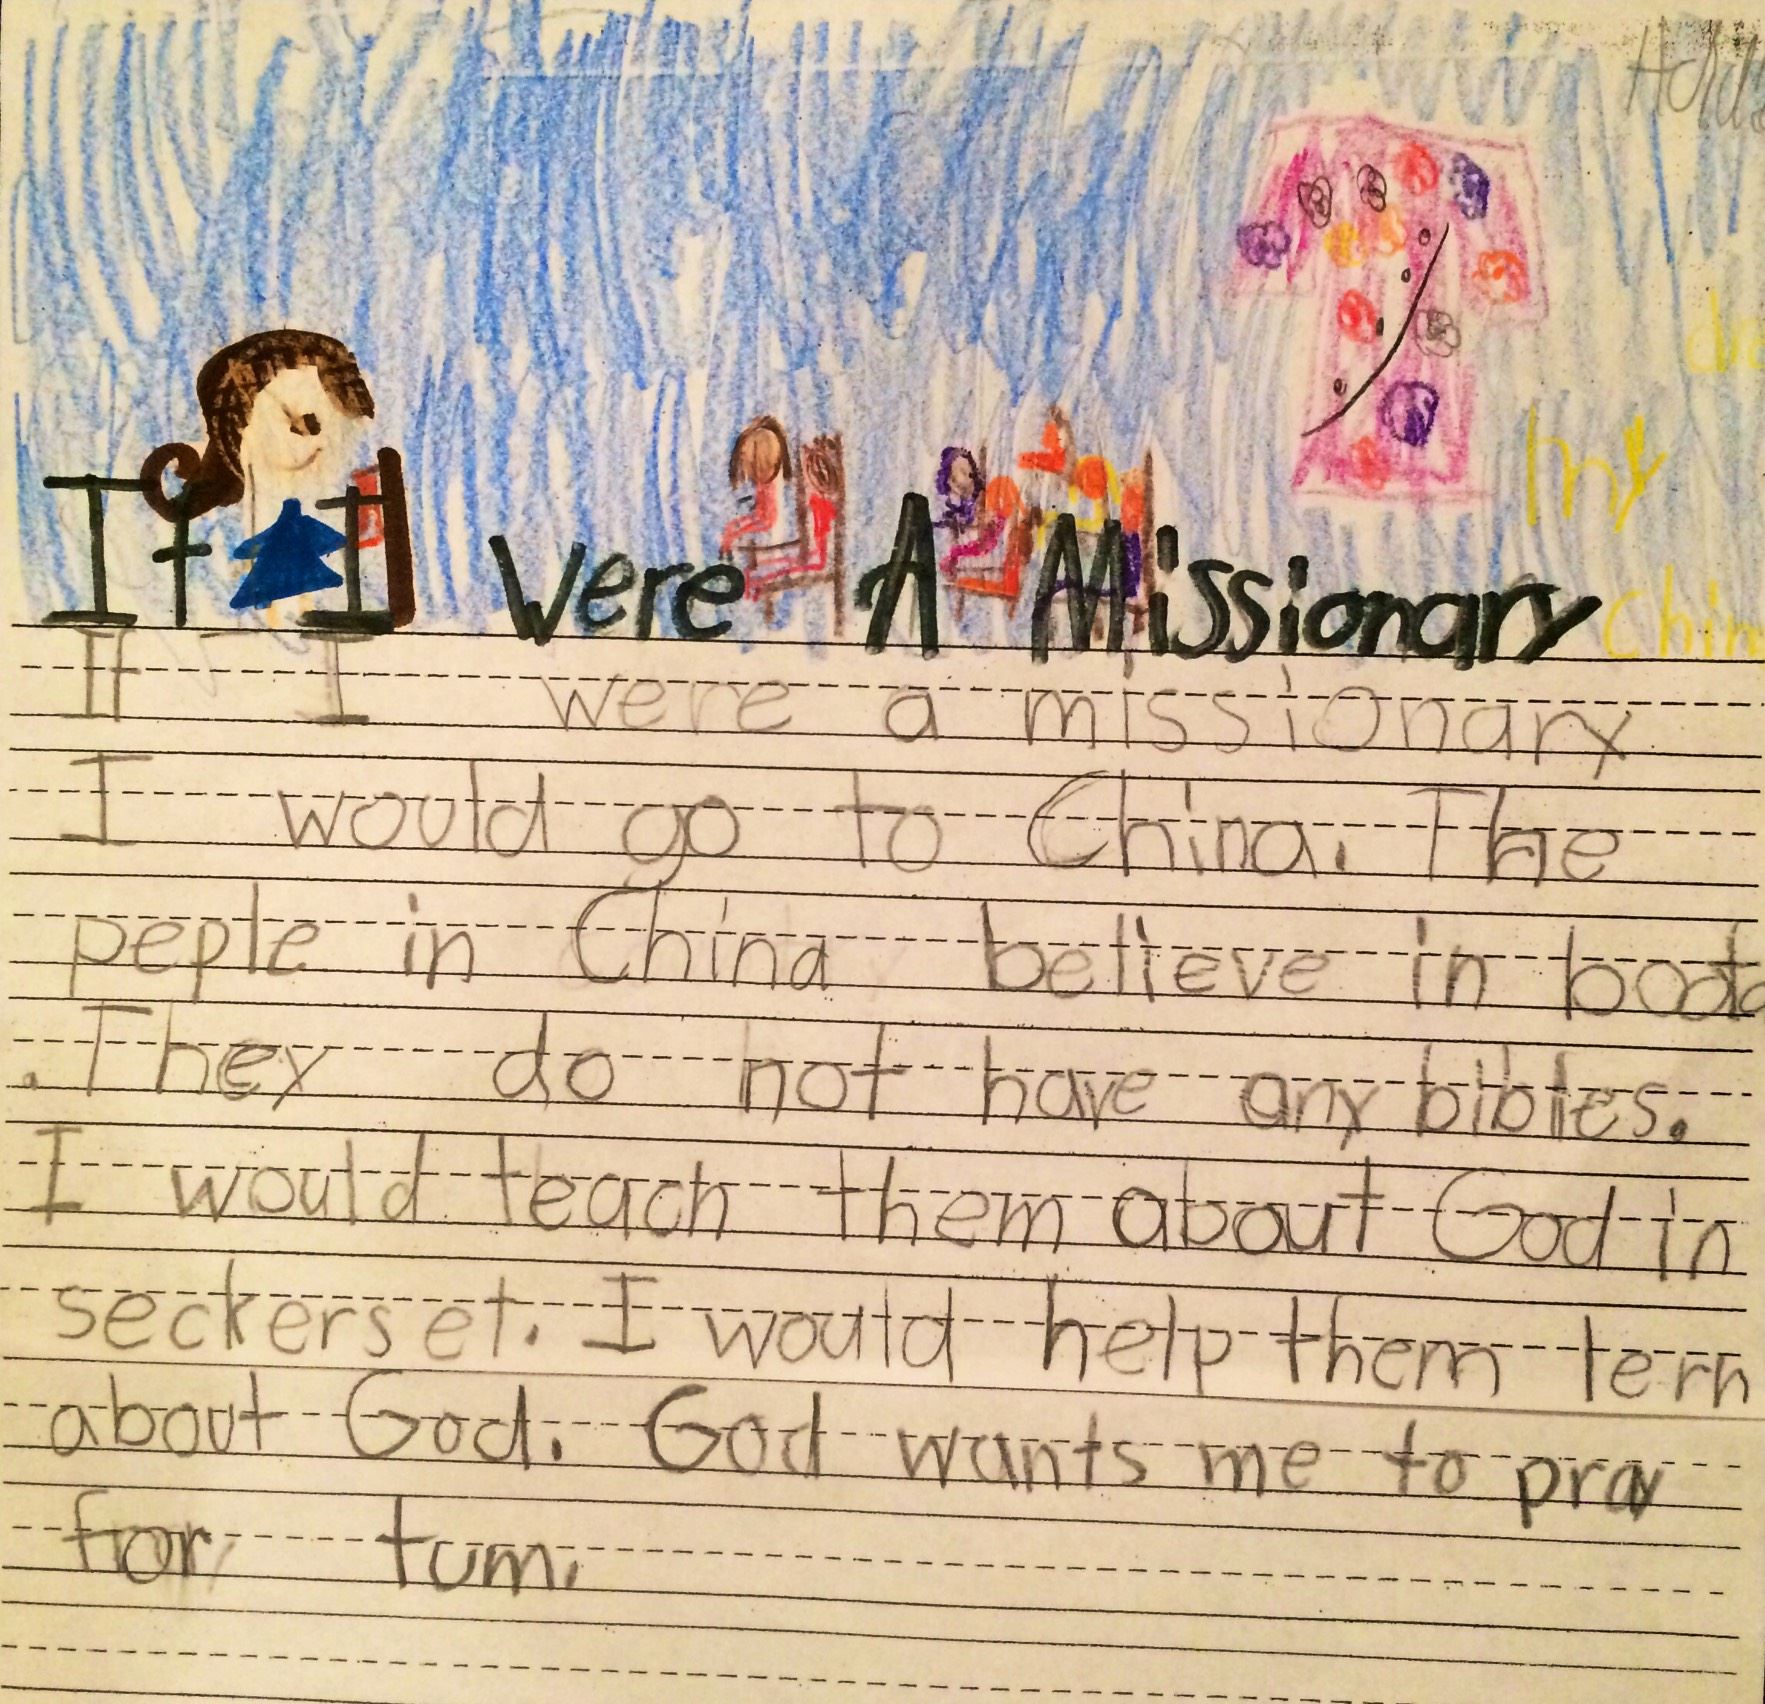 my
If I Were A Missionary
If I were a missionary
I would go to China. The
peple in China believe in
.They do not have any bibles.
I would teach them about God in
seckerset. I would help them lern
about God. God wants me to pray
for tum.